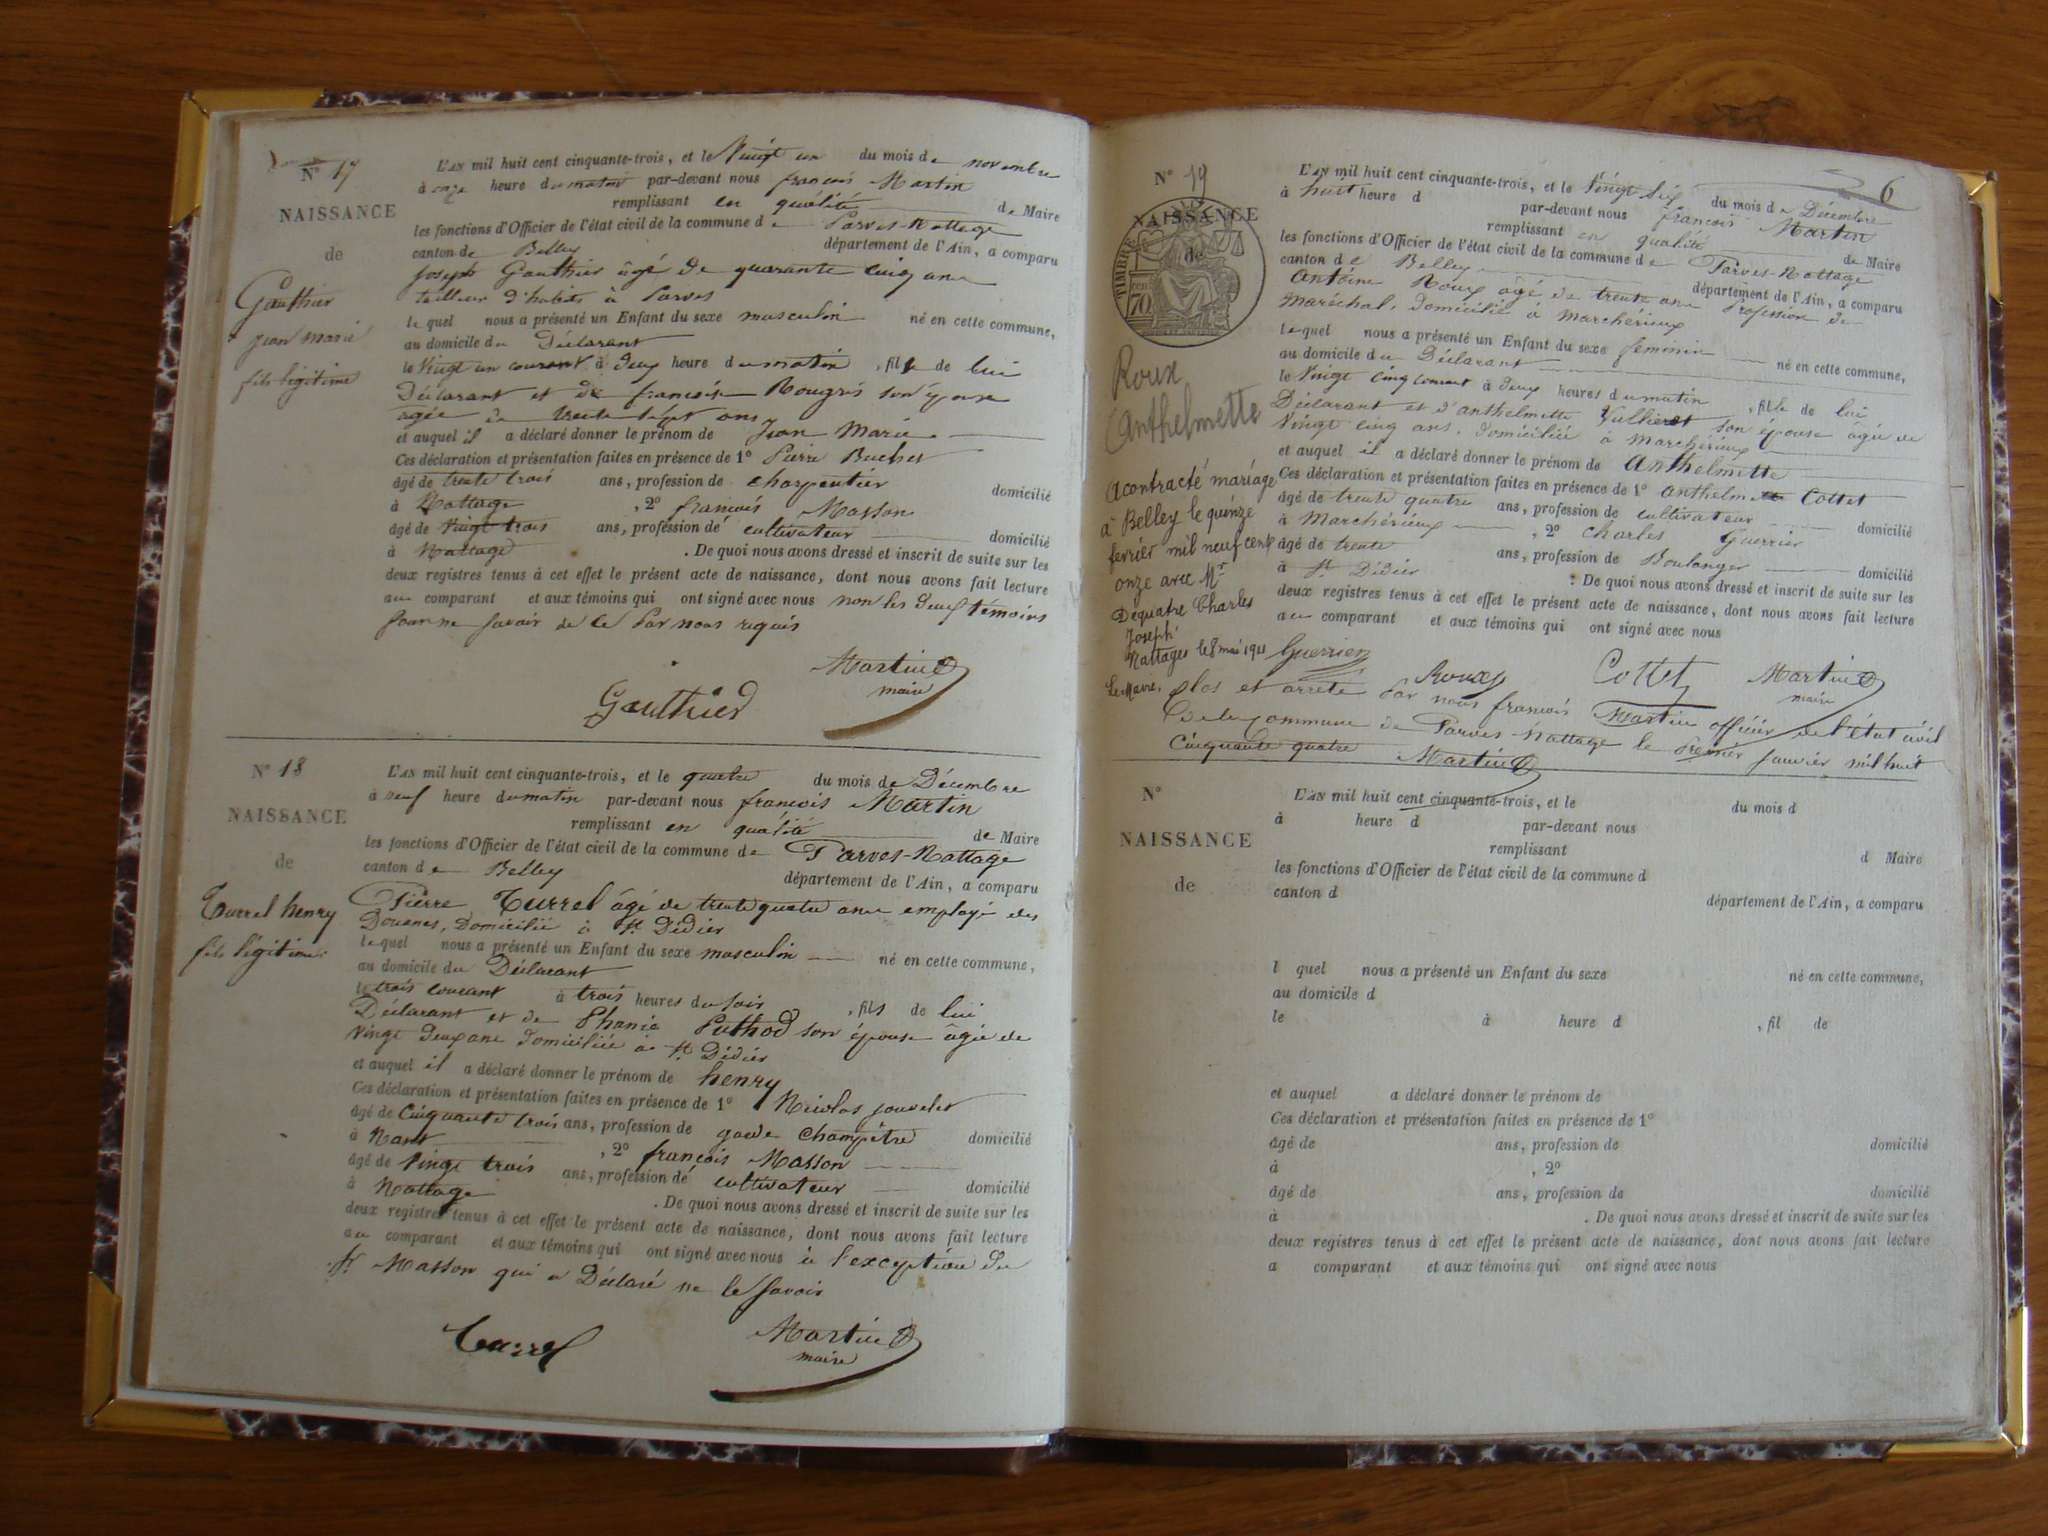 N° 17
NAISSANCE
de
Gauthier
jean marie
fils légitime
L'AN mil huit cent cinquante-trois, et le Vingt un du mois de novembre
à onze heure du matin par-devant nous françois Martin
remplissant en qualité de Maire
les fonctions d'Officier de l'état civil de la commune de Parves-Nattage
canton de Belley département de l'Ain, a comparu
Joseph Gauthier âgé de quarante cinq ans
tailleur d'habits à Parves
lequel nous a présenté un Enfant du sexe masculin né en cette commune,
au domicile du Déclarant
le Vingt un courant à deux heure du matin, fils de lui
Déclarant et de françoise Rougrés son épouse
agée de trente sept ans
et auquel il a déclaré donner le prénom de Jean Marie
Ces déclaration et présentation faites en présence de 1° Pierre Buchet
âgé de trente trois ans, profession de charpentier domicilié
à Nattage, 2° françois Masson
âgé de Vingt trois ans, profession de cultivateur domicilié
à Nattage. De quoi nous avons dressé et inscrit de suite sur les
deux registres tenus à cet effet le présent acte de naissance, dont nous avons fait lecture
au comparant et aux témoins qui ont signé avec nous non les deux témoins
Pour ne savoir de ce Par nous requis
Martin
maire
Gauthier
N° 18
NAISSANCE
de
Turrel henry
fils légitime
L'AN mil huit cent cinquante-trois, et le quatre du mois de Décembre
à neuf heure du matin par-devant nous françois Martin
remplissant en qualité de Maire
les fonctions d'Officier de l'état civil de la commune de Parves-Nattage
canton de Belley département de l'Ain, a comparu
Pierre Turrel âgé de trente quatre ans employé des
Douanes, Domicilié à St Didier
lequel nous a présenté un Enfant du sexe masculin né en cette commune,
au domicile du Déclarant
le trois courant à trois heures du soir, fils de lui
Déclarant et de Phanie Puthod son épouse âgée de
Vingt deux ans domiciliée à St Didier
et auquel il a déclaré donner le prénom de henry
Ces déclaration et présentation faites en présence de 1° Nicolas jouvelet
âgé de Cinquante trois ans, profession de garde Champêtre domicilié
à Nant, 2° françois Masson
âgé de Vingt trois ans, profession de cultivateur domicilié
à Nattage. De quoi nous avons dressé et inscrit de suite sur les
deux registres tenus à cet effet le présent acte de naissance, dont nous avons fait lecture
au comparant et aux témoins qui ont signé avec nous à l'exception du
Sr Masson qui a Déclaré ne le Savoir
Turrel
Martin
maire
6
N° 19
NAISSANCE
de
TIMBRE
70
Roux
Anthelmette
A contracté mariage
à Belley le quinze
fevrier mil neuf cent
onze avec Mr
Dequatre Charles
Joseph
Nattages le 8 mai 1911
Le Maire,
L'AN mil huit cent cinquante-trois, et le Vingt six du mois de Décembre
à huit heure d par-devant nous françois Martin
remplissant en qualité de Maire
les fonctions d'Officier de l'état civil de la commune de Parves-Nattage
canton de Belley département de l'Ain, a comparu
Antoine Roux âgé de trente ans Profession de
maréchal, domicilié à marcherieux
lequel nous a présenté un Enfant du sexe feminin né en cette commune,
au domicile du Déclarant
le Vingt cinq courant à deux heures du matin, fille de lui
Déclarant et d'anthelmette Vullieret son épouse âgée de
Vingt cinq ans, domiciliée à Marchérieux
et auquel il a déclaré donner le prénom de Anthelmette
Ces déclaration et présentation faites en présence de 1° Anthelme Cottet
âgé de trente quatre ans, profession de cultivateur domicilié
à Marchérieux, 2° Charles Guerrier
âgé de trente ans, profession de Boulanger domicilié
à St Didier. De quoi nous avons dressé et inscrit de suite sur les
deux registres tenus à cet effet le présent acte de naissance, dont nous avons fait lecture
au comparant et aux témoins qui ont signé avec nous
Guerrier Roux Cottet Martin
maire
Clos et arrêté Par nous françois Martin officier de l'état civil
De la Commune de Parves-Nattage le Premier Janvier mil huit
Cinquante quatre Martin
N°
NAISSANCE
de
L'AN mil huit cent cinquante-trois, et le du mois d
à heure d par-devant nous
remplissant d Maire
les fonctions d'Officier de l'état civil de la commune d
canton d département de l'Ain, a comparu
l quel nous a présenté un Enfant du sexe né en cette commune,
au domicile d
le à heure d , fil de
et auquel a déclaré donner le prénom de
Ces déclaration et présentation faites en présence de 1°
âgé de ans, profession de domicilié
à , 2°
âgé de ans, profession de domicilié
à . De quoi nous avons dressé et inscrit de suite sur les
deux registres tenus à cet effet le présent acte de naissance, dont nous avons fait lecture
a comparant et aux témoins qui ont signé avec nous